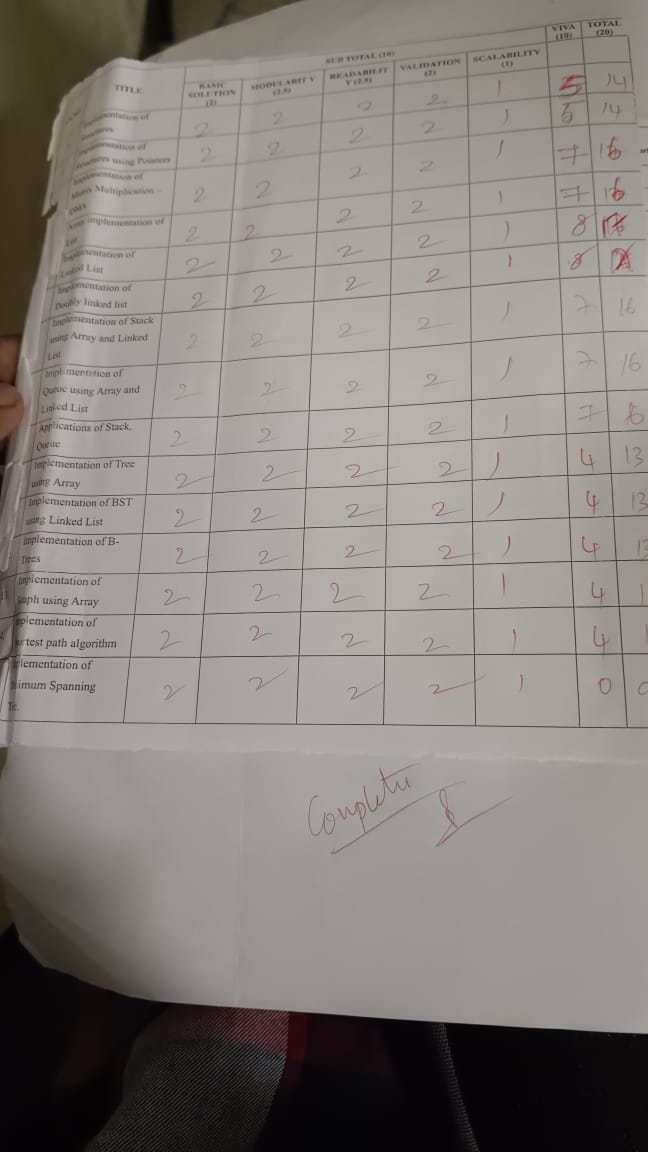 SUB TOTAL (10)
VIVA (10)
TOTAL (20)
TITLE
BASIC SOLUTION (2)
MODULARIT Y (2.5)
READABILIT Y (2.5)
VALIDATION (2)
SCALABILITY (1)
2 2 2 2 1 5 14
Implementation of
2 2 2 2 1 5 14
using Pointers
Implementation of
Matrix Multiplication –
2 2 2 2 1 7 16
Array Implementation of
List
2 2 2 2 1 7 16
Implementation of
Linked List
2 2 2 2 1 8
Implementation of
Doubly linked list
2 2 2 2 1 8
Implementation of Stack
using Array and Linked
List
2 2 2 2 1 7 16
Implementation of
Queue using Array and
Linked List
2 2 2 2 1 7 16
Applications of Stack,
Queue
2 2 2 2 1 7
Implementation of Tree
using Array
2 2 2 2 1 4 13
Implementation of BST
using Linked List
2 2 2 2 1 4 13
Implementation of B-
Trees
2 2 2 2 1 4 13
Implementation of
Graph using Array
2 2 2 2 1 4 1
plementation of
rtest path algorithm
2 2 2 2 1 4 1
lementation of
nimum Spanning
2 2 2 2 1 0